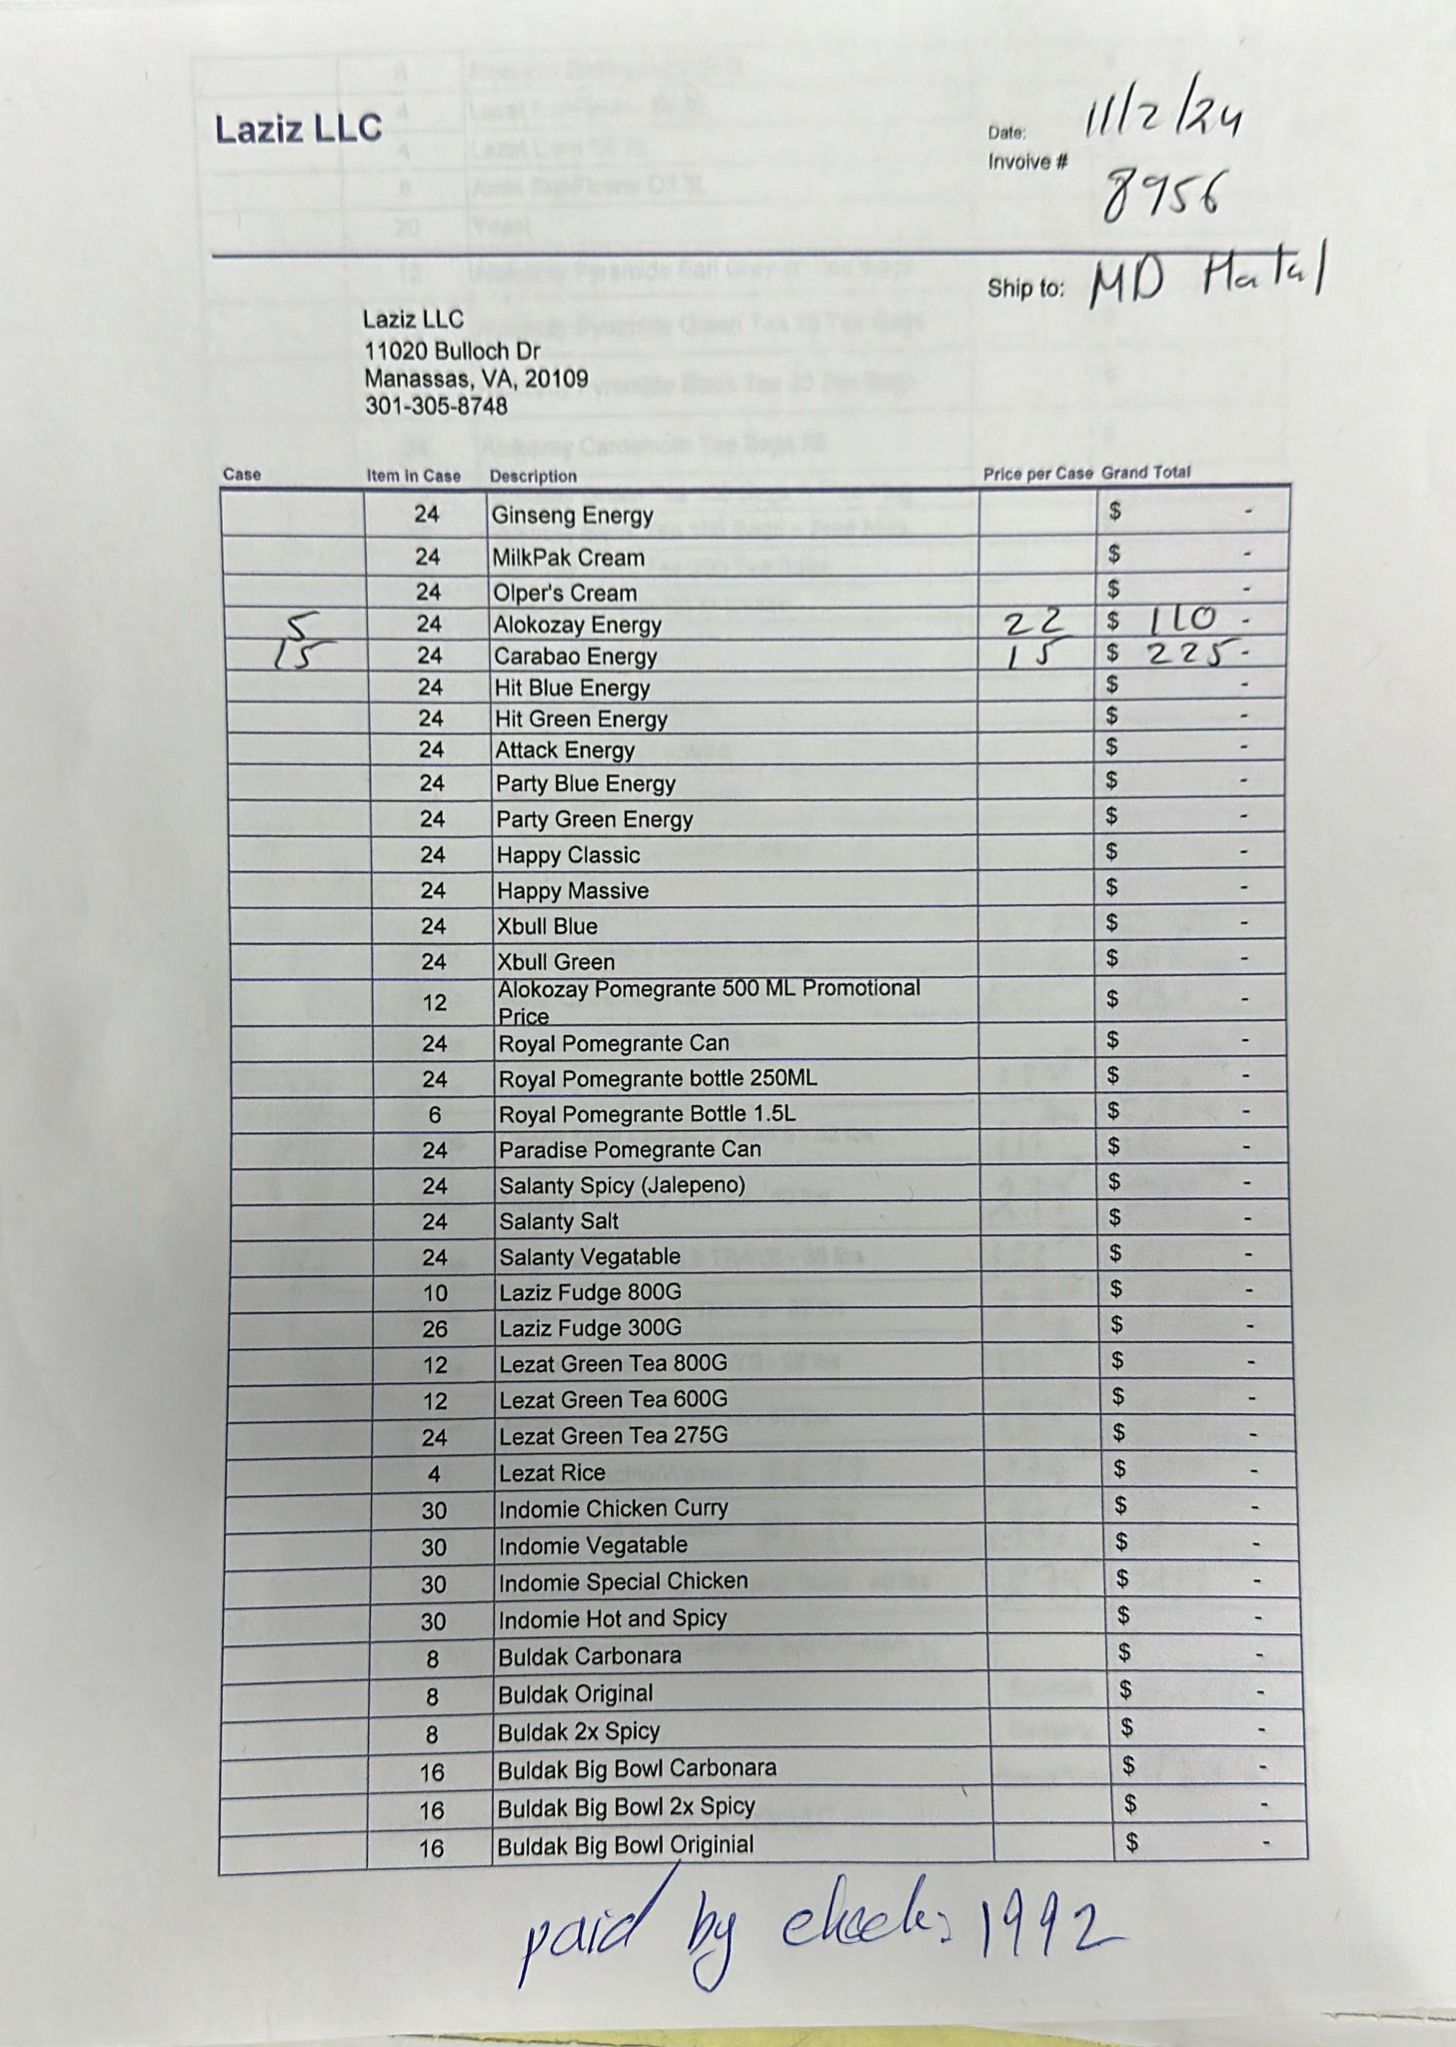 Laziz LLC
Date: 11/2/24
Invoive # 8956
Ship to: MD Halal
Laziz LLC
11020 Bulloch Dr
Manassas, VA, 20109
301-305-8748
Case Item in Case Description Price per Case Grand Total
24 Ginseng Energy $ -
24 MilkPak Cream $ -
24 Olper's Cream $ -
5 24 Alokozay Energy 22 $ 110 -
15 24 Carabao Energy 15 $ 225 -
24 Hit Blue Energy $ -
24 Hit Green Energy $ -
24 Attack Energy $ -
24 Party Blue Energy $ -
24 Party Green Energy $ -
24 Happy Classic $ -
24 Happy Massive $ -
24 Xbull Blue $ -
24 Xbull Green $ -
12 Alokozay Pomegrante 500 ML Promotional $ -
Price
24 Royal Pomegrante Can $ -
24 Royal Pomegrante bottle 250ML $ -
6 Royal Pomegrante Bottle 1.5L $ -
24 Paradise Pomegrante Can $ -
24 Salanty Spicy (Jalepeno) $ -
24 Salanty Salt $ -
24 Salanty Vegatable $ -
10 Laziz Fudge 800G $ -
26 Laziz Fudge 300G $ -
12 Lezat Green Tea 800G $ -
12 Lezat Green Tea 600G $ -
24 Lezat Green Tea 275G $ -
4 Lezat Rice $ -
30 Indomie Chicken Curry $ -
30 Indomie Vegatable $ -
30 Indomie Special Chicken $ -
30 Indomie Hot and Spicy $ -
8 Buldak Carbonara $ -
8 Buldak Original $ -
8 Buldak 2x Spicy $ -
16 Buldak Big Bowl Carbonara $ -
16 Buldak Big Bowl 2x Spicy $ -
16 Buldak Big Bowl Originial $ -
paid by check: 1992